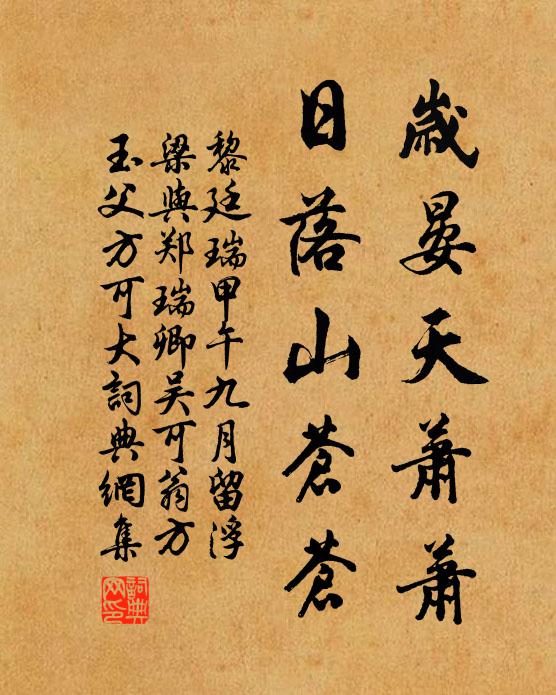 歲晏天蕭蕭
日落山蒼蒼
黎廷瑞甲午九月留浮
梁與郑瑞卿吴可翁方
玉父方可大詞典網集
詞典网印